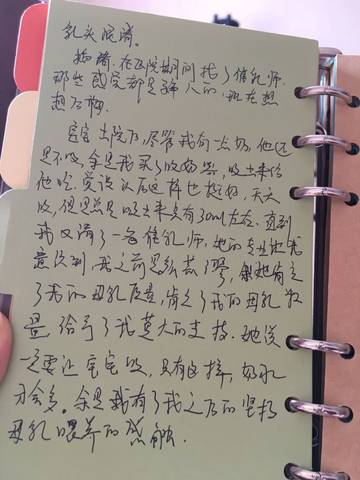 乳头混淆。
插播.在医院期间找了催乳师.
那些感觉都是骗人的,现在想
想后悔.
宝宝出院后尽管我有一切.他还
是不吸.于是我买了吸奶器,吸出来给
他吃.觉得以后这样也挺好.天天
吸,但是总是吸出来只有30ml左右.直到
我又请了一名催乳师.她的专业让我
意识到,我之前是乳头了.她肯定
了我的母乳质量,肯定了我的母乳数
量.给予了我莫大的支持.她说
一定要让宝宝吸,只有这样,奶水
才会多。于是就有了我之后的坚持
母乳喂养的感触.